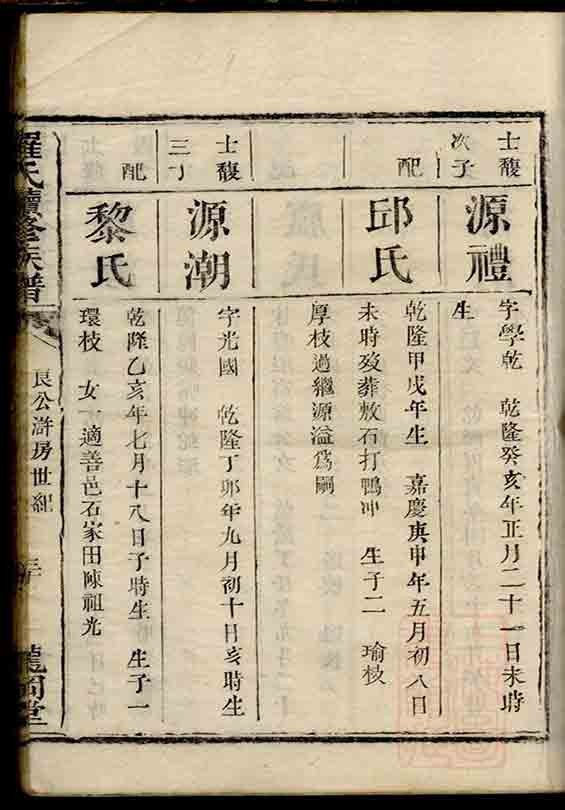 士馥
次子
源禮
字學乾　乾隆癸亥年正月二十一日未時
生
配
邱氏
乾隆甲戌年生　嘉慶庚申年五月初八日
未時歿葬敖石打鴨冲　生子二　瑜枝
厚枝過繼源溢爲嗣
士馥
三子
源潮
字光國　乾隆丁卯年九月初十日亥時生
配
黎氏
乾隆乙亥年七月十八日子時生　生子一
環枝　女一適善邑石家田陳祖光
羅氏續修族譜
艮公滸房世紀
龍岡堂